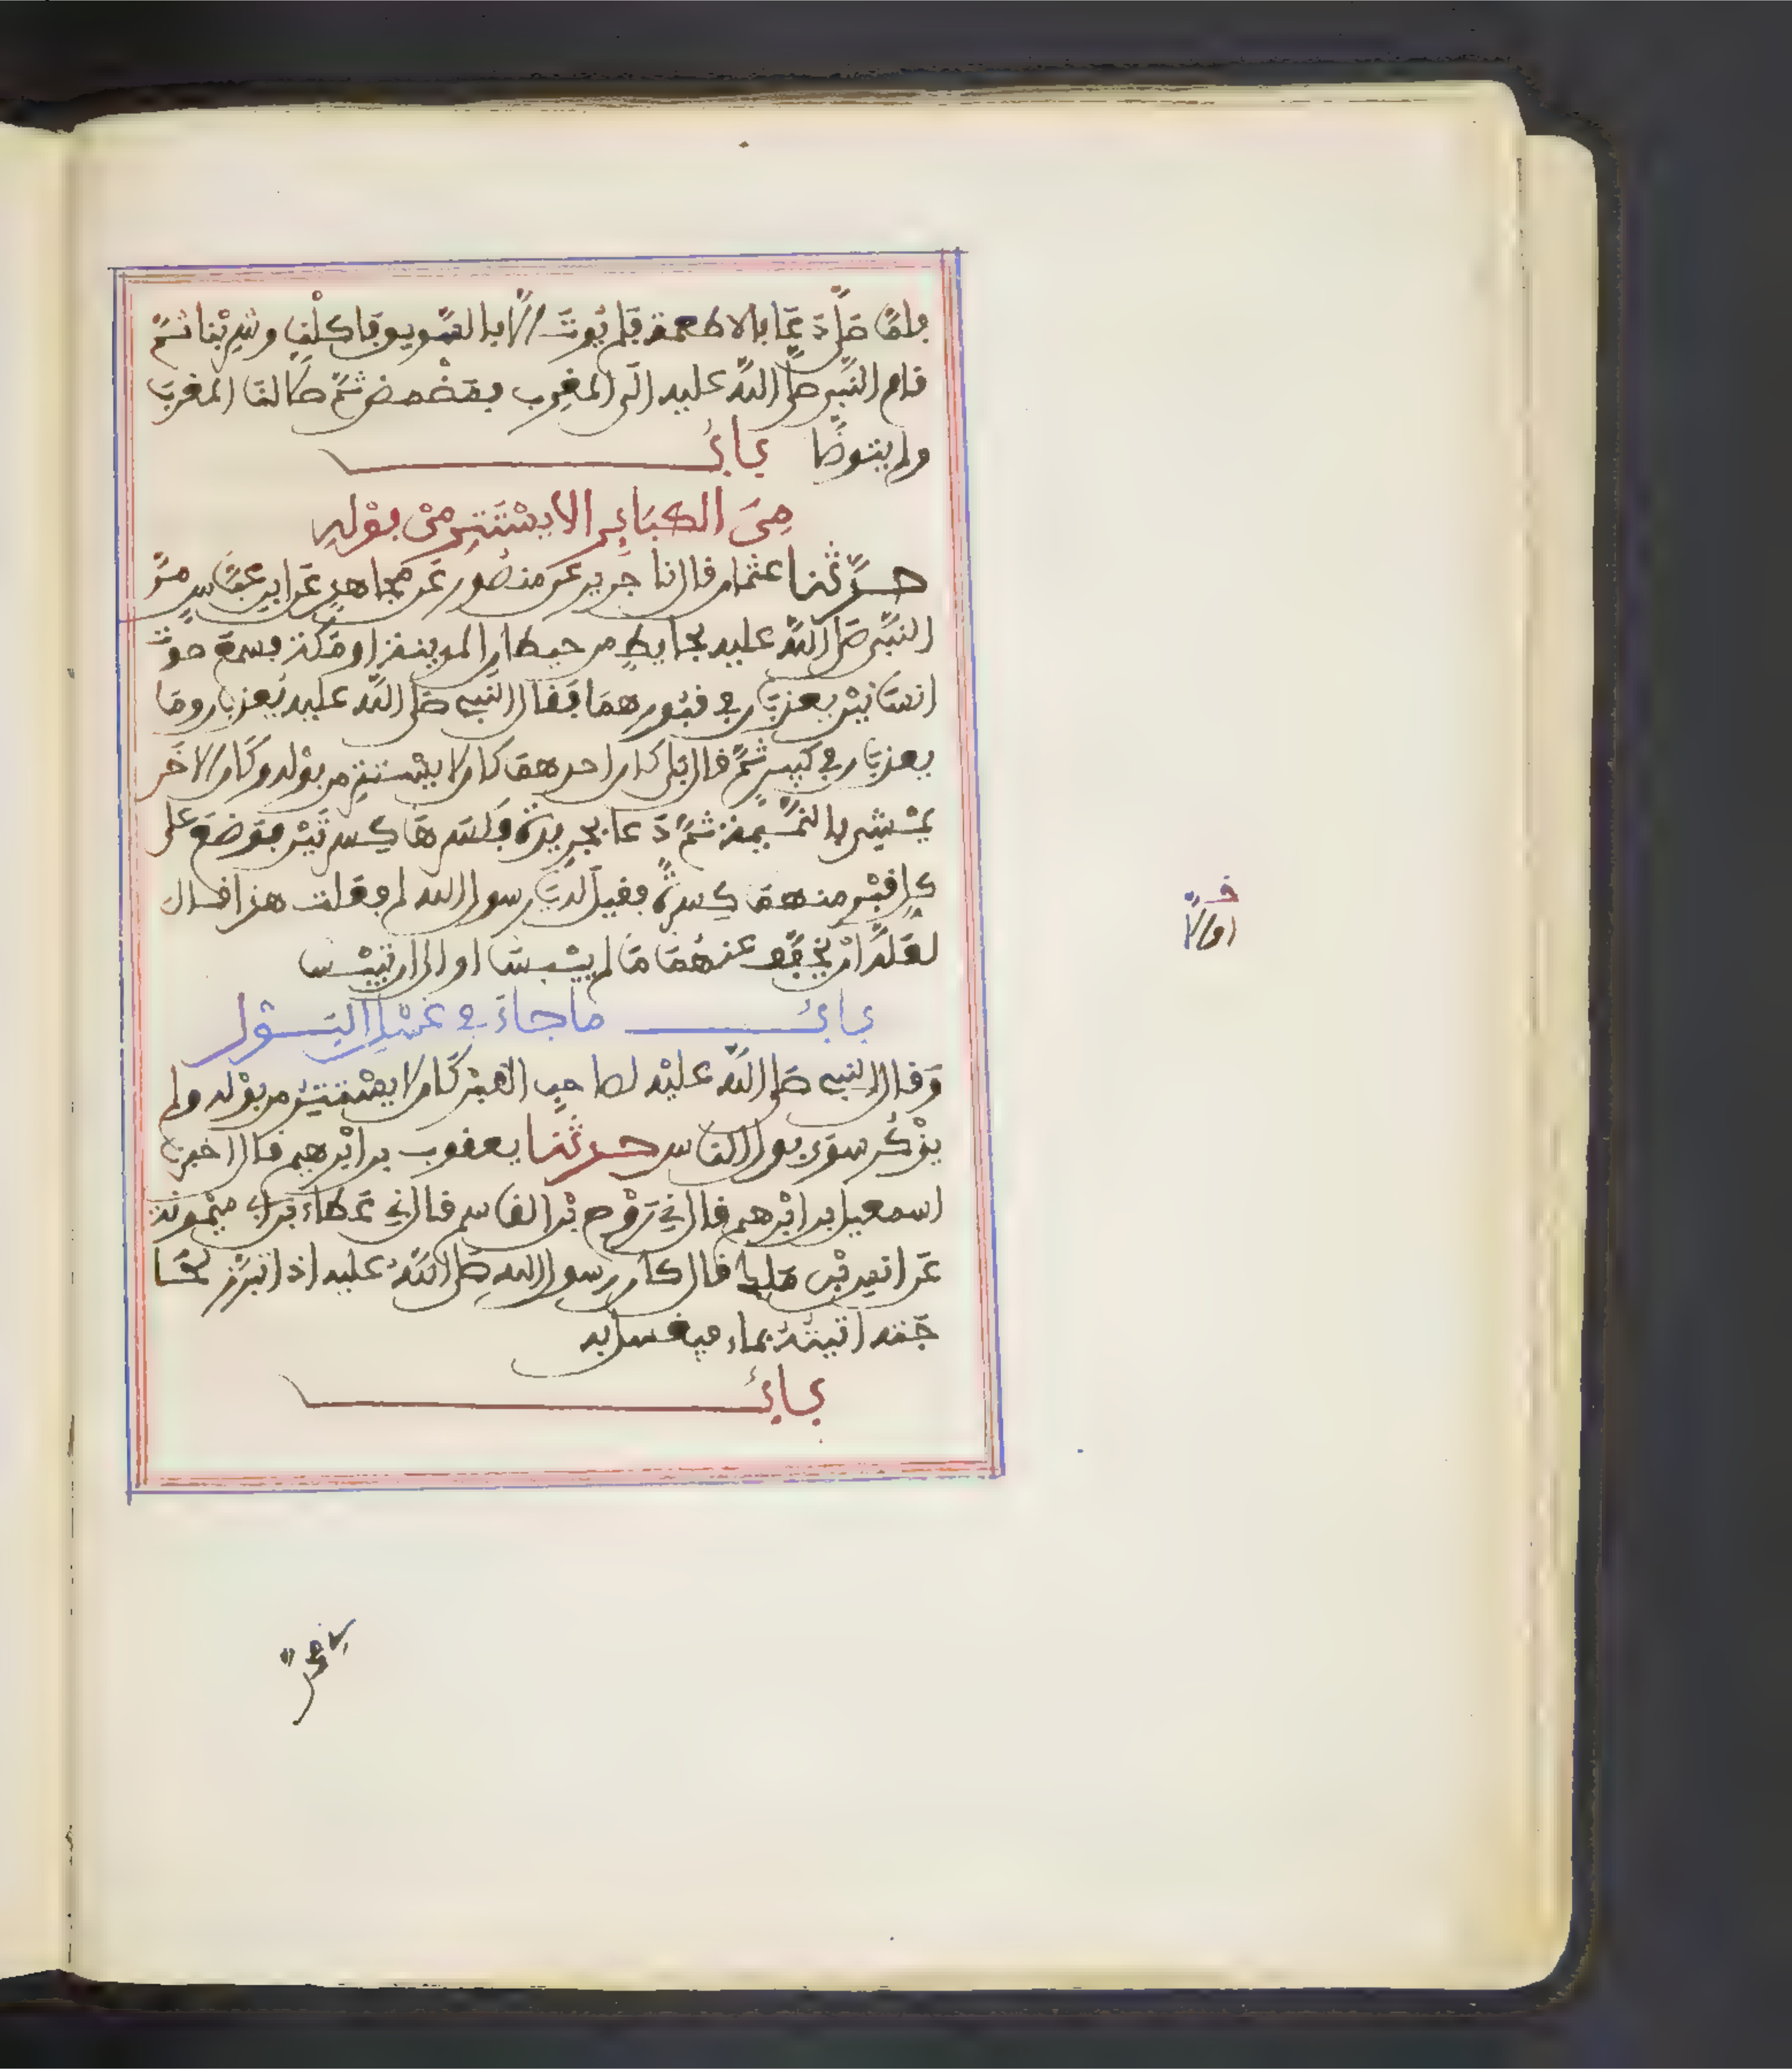 فلمّا صلّى دَعَا بالاطعمة فلم يُوتَ الّا بالسّويق فاكلْنا وشرِبْنا ثمّ
قام النّبي صلى اللّه عليه الى المغرِب فمَضْمض ثمّ صلى لنا المغربَ
ولم يتوضّا بابٌ
مِنَ الكبَائِر الا يسْتَتِر مِنْ بوْلِهِ
حدّثنا عثمان قال نا جرير عن منصُور عَن مجاهدٍ عَن ابن عبّاس مرّ
النّبي صلى اللّه عليه بحايطٍ من حيطان المدينة او مكة فسمع صوتَ
انسَانيْن يعذبَان في قبُورهمَا فقال النبي صلى اللّه عليه يُعذبان ومَا
يعذبَان في كبيرٍ ثمّ قال بَلى كان احدهمَا كان لا يسْتتِر من بوْله وكَان الاخَر
يمْشِي بالنّمِيمة ثمّ دَعا بجرِيدة فكسَرهَا كِسرتَيْن فوَضعَ على
كل قبْر منهمَا كِسرةً فقيلَ لهُ يَا رسول الله لم فعَلت هذا قال
لعَلّهُ انْ يُخَفّف عنهُمَا مَا لم يَيْبسَا او الى ان تيْبسا
بابُ ما جاءَ في غَسْلِ البَوْل
وَقال النبي صلى اللّه عليْه لصاحِب القبْر كَان لا يسْتتِرُ من بوْله ولم
يذْكُر سوَى بول الناس حدثنا يعقوب بن ابْرهيم قال اخبرنا
اسمعيل بن ابْرهيم قال ني رَوْح بْن القاسم قال ني عَطاء بْن ابي ميْمُونة
عَن انس بْن مَلِك قال كان رسول اللهِ صلى اللّهُ عليه اذا تبرّز لحا
جَته اتيتُهُ بماء فيغسل به
بابٌ
اوالا